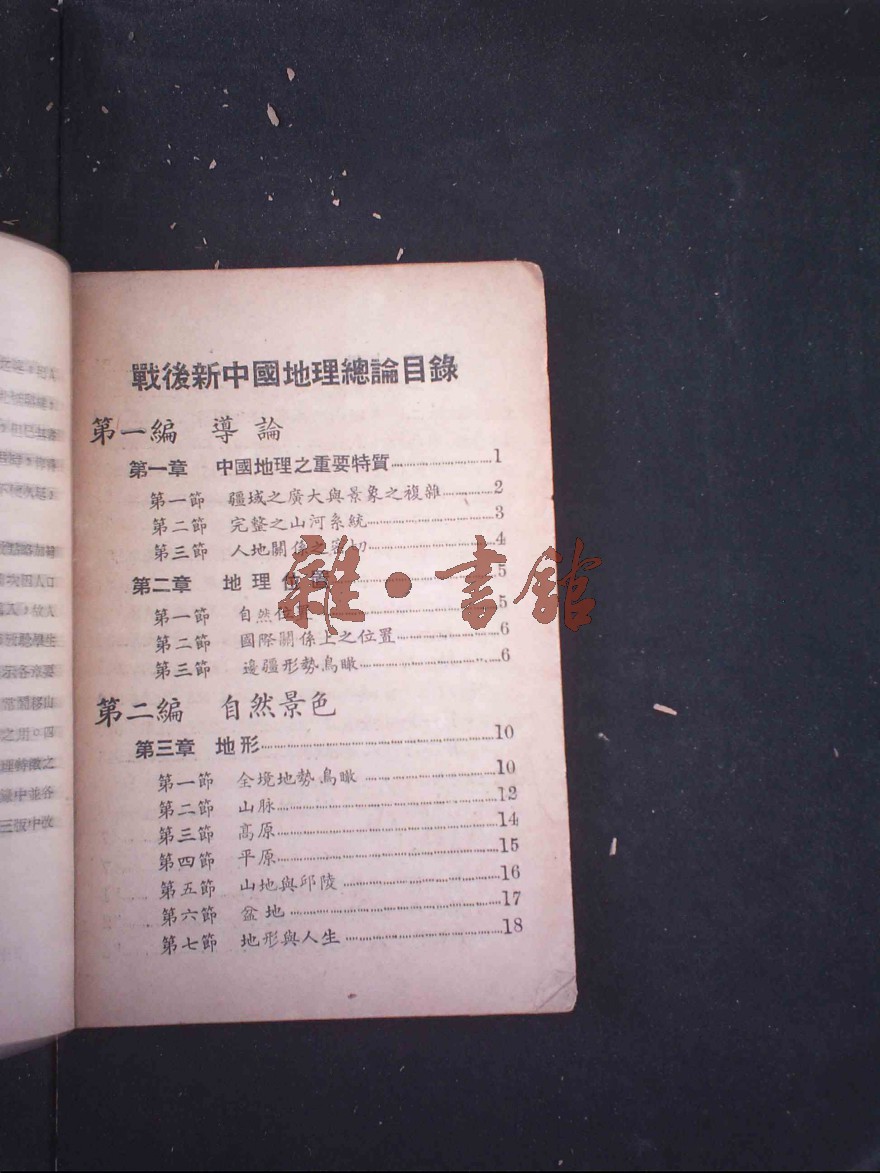 戰後新中國地理總論目錄
第一編 導論
第一章 中國地理之重要特質 1
第一節 疆域之廣大與景象之複雜 2
第二節 完整之山河系統 3
第三節 人地關係之密切 4
第二章 地理位置 5
第一節 自然位置 5
第二節 國際關係上之位置 6
第三節 邊疆形勢鳥瞰 6
第二編 自然景色
第三章 地形 10
第一節 全境地勢鳥瞰 10
第二節 山脉 12
第三節 高原 14
第四節 平原 15
第五節 山地與邱陵 16
第六節 盆地 17
第七節 地形與人生 18
雜·書館